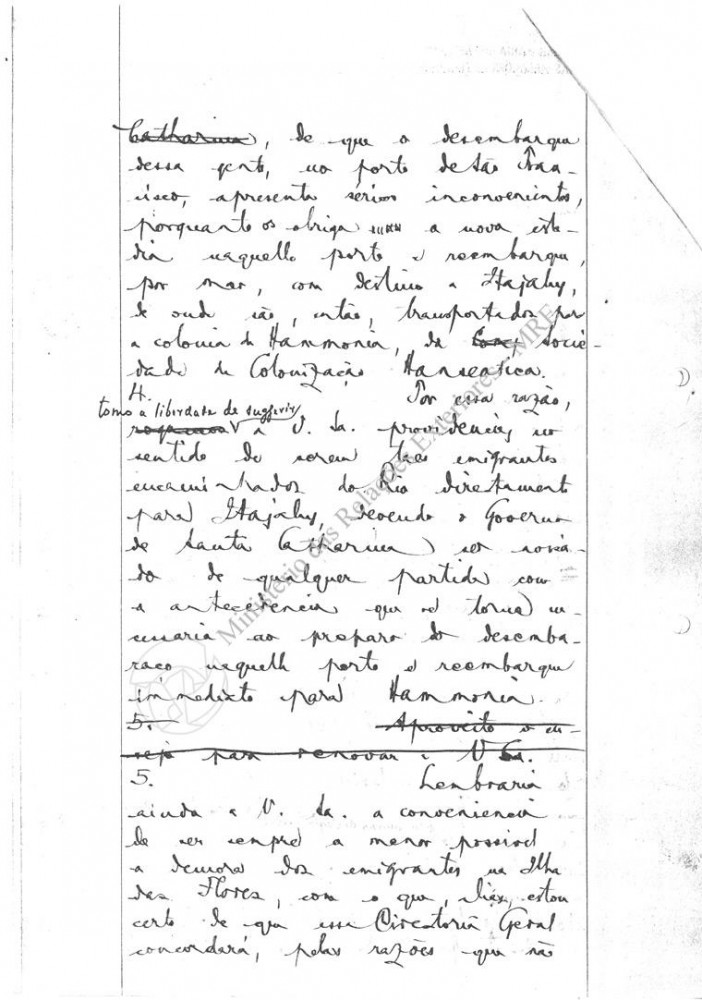 Catharina, de que o desembarque
dessa gente, no porto de São Fran-
cisco, apresenta sérios inconvenientes,
porquanto os obriga a nova esta-
dia naquelle porto e reembarque,
por mar, com destino a Itajahy,
de onde são, então, transportados por
a colonia de Hammonia, da Socie-
dade de Colonização Hanseatica.
4. Por essa razão,
tomo a liberdade de suggerir
a V. Sa. providencias no
sentido de serem taes emigrantes
encaminhados do Rio directamente
para Itajahy, devendo o Governo
de Santa Catharina ser avisa-
do de qualquer partida com
a antecedencia que se torna ne-
cessaria ao preparo do desemba-
raço naquelle porto e reembarque
immediato para Hammonia.
5. Aproveito o en-
sejo para renovar a V. Sa.
5. Lembraria
ainda a V. Sa. a conveniencia
de ser sempre a menor possivel
a demora dos emigrantes na Ilha
das Flores, com o que, aliás, estou
certo de que essa Directoria Geral
concordará, pelas razões que não
Ministério das Relações Exteriores - MRE